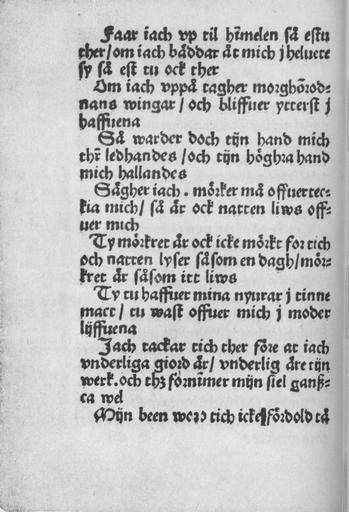 Faar iach vp til hīmelen så estu
ther/om iach båddar åt mich j heluete
sy så est tu ock ther
Om iach vppå tagher morghōrod-
nans wingar/ och bliffuer ytterst j
haffuena
Så warder doch tijn hand mich
thr̄ ledhandes /och tijn höghra hand
mich hallandes
Sägher iach . mörker må offuertec-
kia mich/ så är ock natten liws off-
uer mich
Ty mörkret är ock icke mörkt for tich
och natten lyser såsom en dagh/mör-
kret är såsom itt liws
Ty tu haffuer mina nyurar j tinne
mact/ tu wast offuer mich j moder
lijffuena
Jach tackar tich ther före at iach
vnderliga giord är/ vnderlig äre tijn
werk.och thꝫ förnīmer mijn siel ganß-
ca wel
Mijn been woro tich icke fördold tå